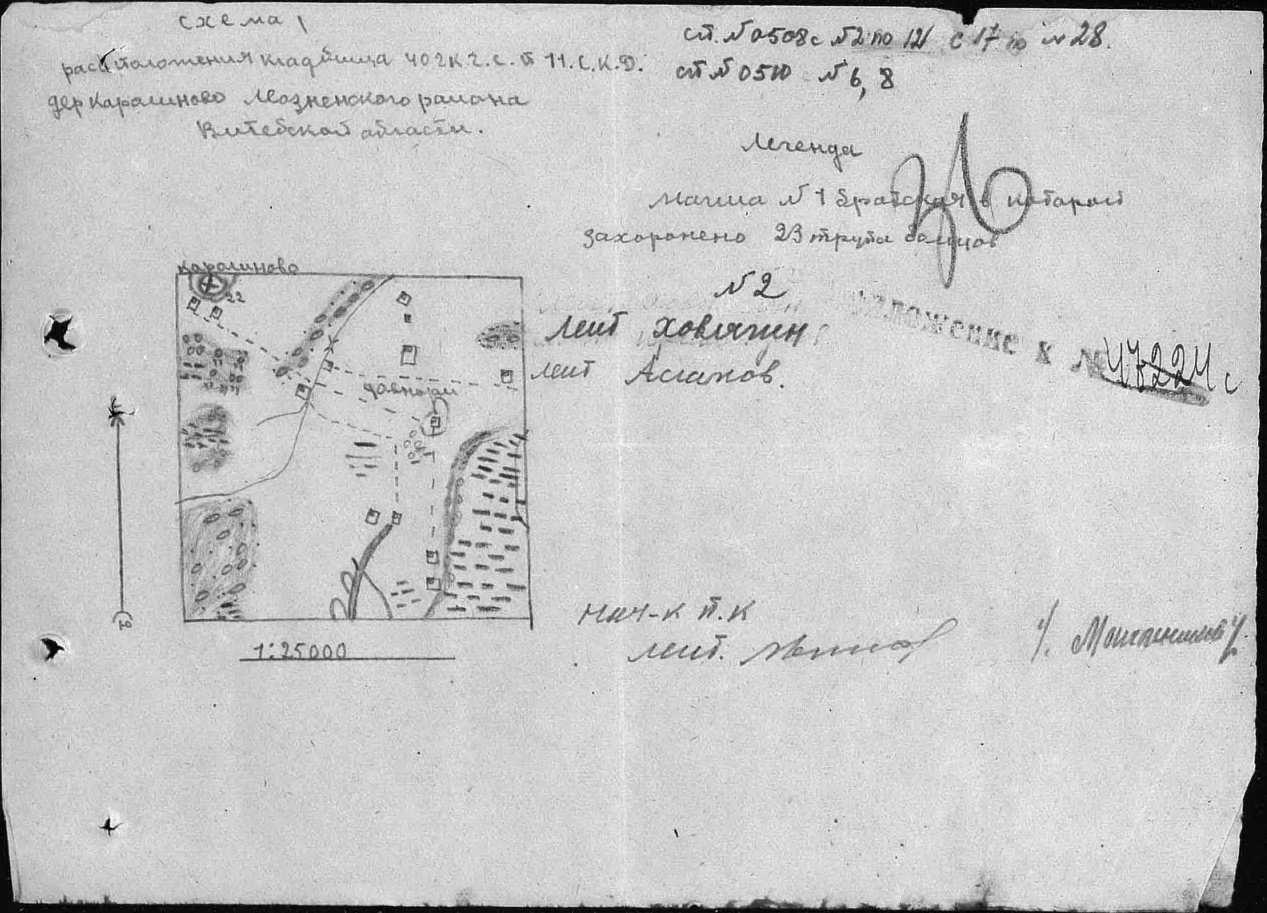 схема
расположения кладбища 402 к.г.с.п 11.С.К.Д.
дер Каралиново Лиозненского района
Витебской области.
ст. № 0508 с № 2 по 12 с 17 по № 28.
ст № 0510 № 6, 8
Легенда
Могила № 1 братская в которой
захоронено 23 трупа бойцов
№ 2
лейт Ховягин
лейт Асланов.
приложение к № 47224 с
Каралиново
22
1:25000
Ю
нач-к п.к
лейт.